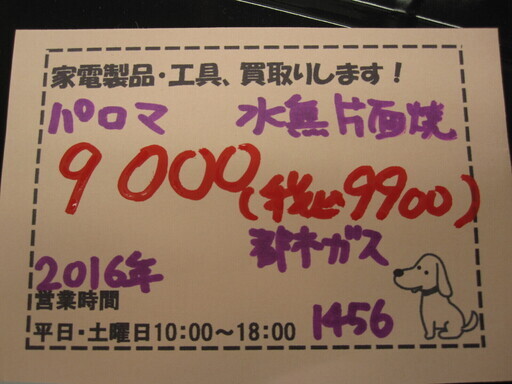 家電製品・工具、買取りします！
パロマ 水無片面焼
9000(税込9900)
都市ガス
2016年
営業時間
平日・土曜日10:00～18:00
1456